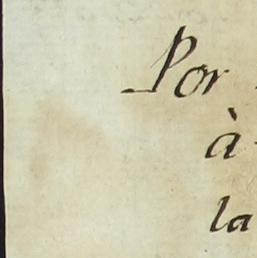 Por
à
la